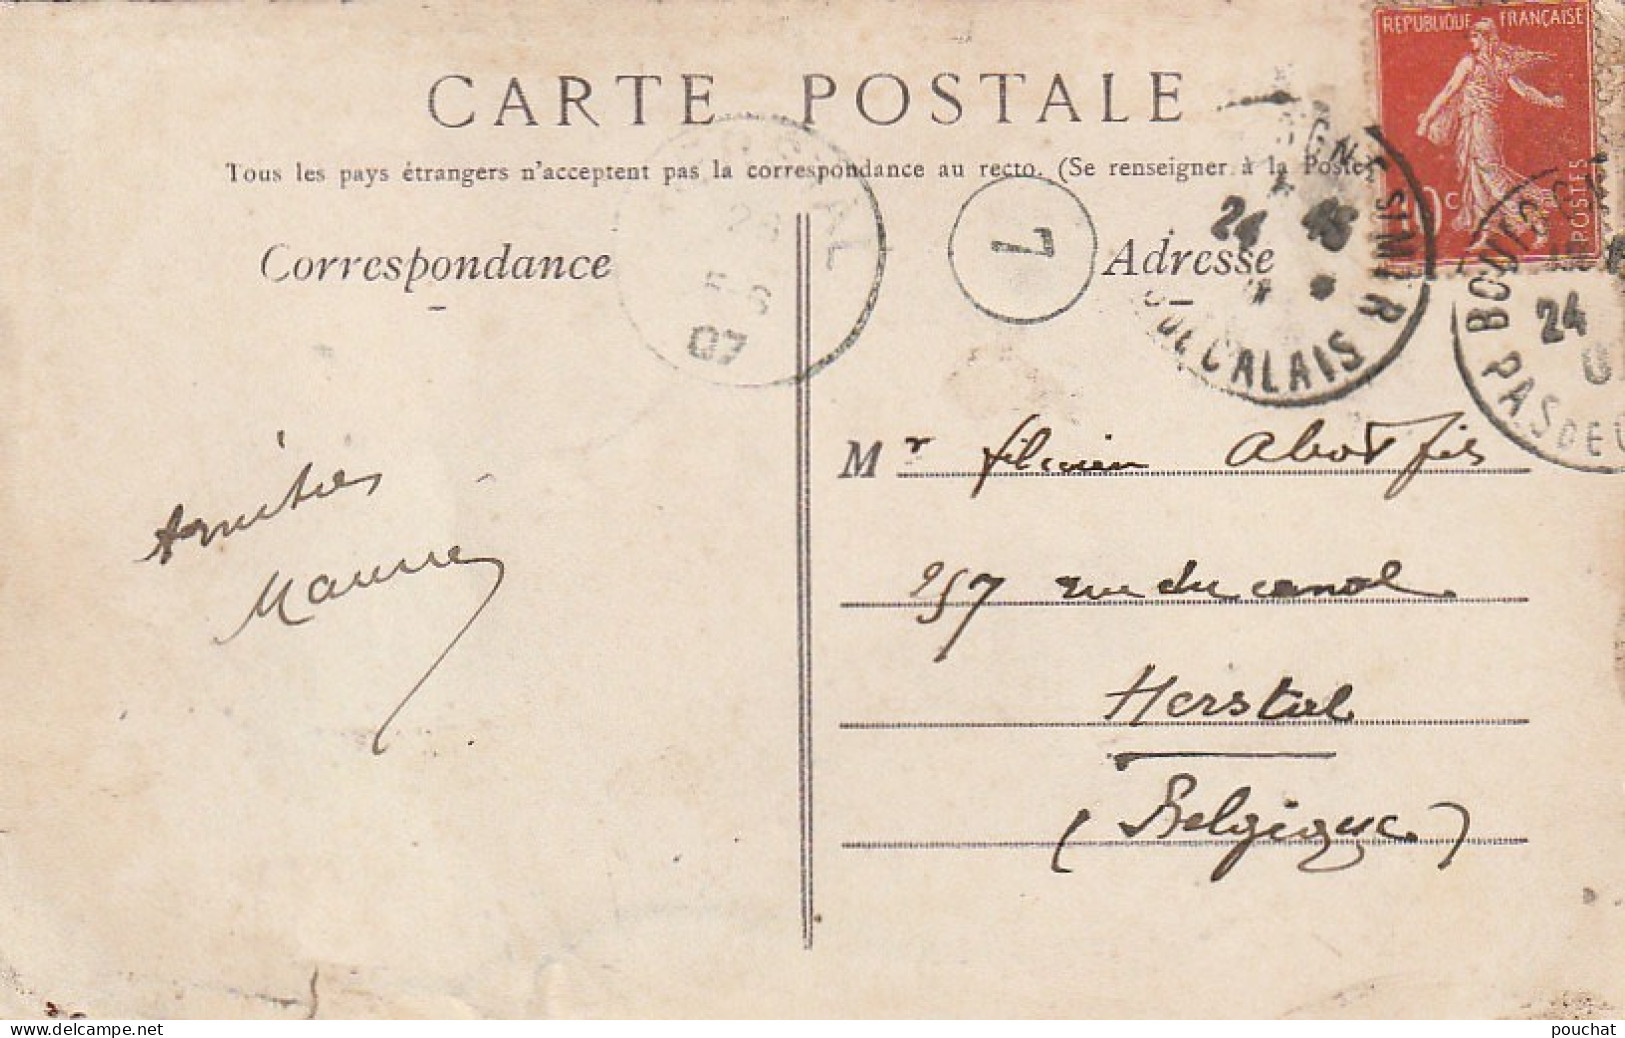 REPUBLIQUE FRANÇAISE
CARTE POSTALE
Tous les pays étrangers n'acceptent pas la correspondance au recto. (Se renseigner à la Poste
POSTES
Correspondance
Adresse
7
24
07
SUR MER
PAS DE CALAIS
BOULOGNE
24
PAS DE
Mr Abot fils
Amitiés
257 rue du canal
Herstal
(Belgique)
www.delcampe.net
pouchat